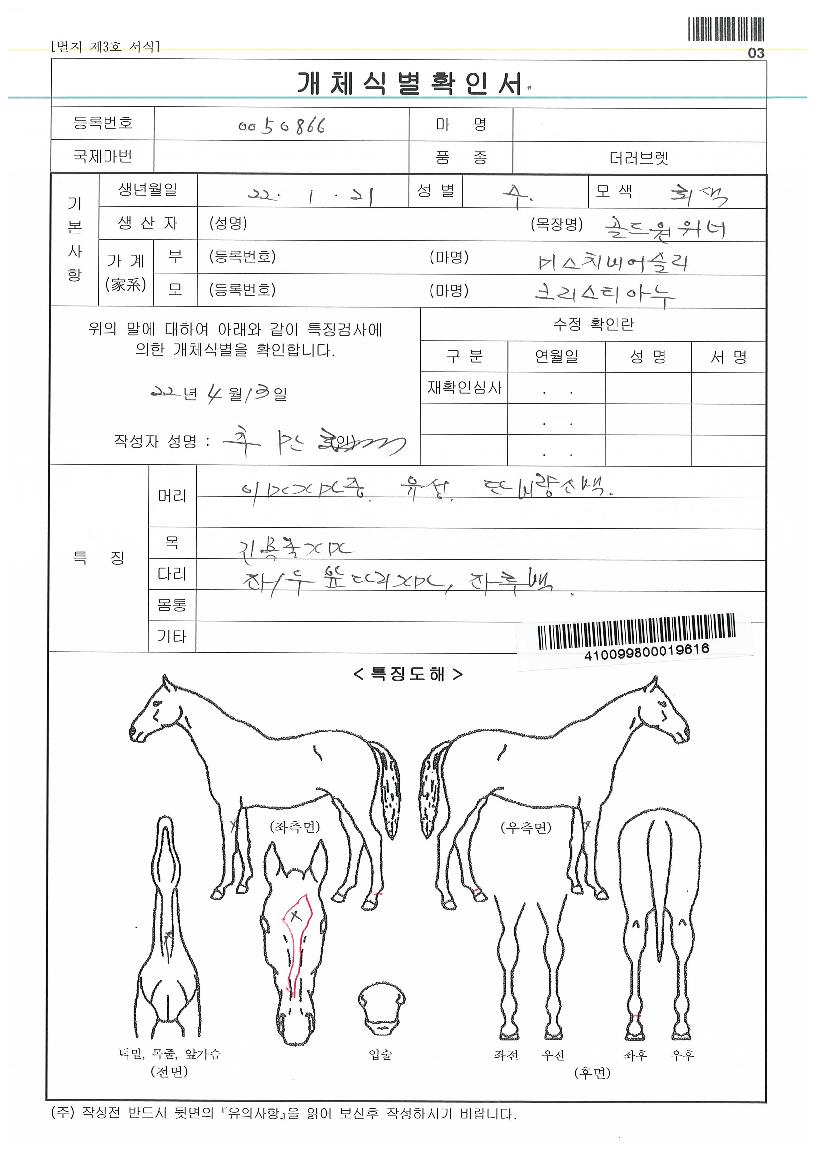 [별지 제3호 서식]
03
개체식별확인서
등록번호 0050866 마 명
국제마번 품 종 더러브렛
기본사항
생년월일 22. 1. 21 성 별 수. 모 색 회색
생 산 자 (성명) (목장명) 골드윈위너
가 계 (家系) 부 (등록번호) (마명) 미스치비어슬리
모 (등록번호) (마명) 크리스티아누
위의 말에 대하여 아래와 같이 특징검사에
의한 개체식별을 확인합니다.
22년 4월 13일
작성자 성명 : (인)
수정 확인란
구 분 연월일 성 명 서 명
재확인심사 . .
. .
. .
특 징
머리 유성
목
다리
몸통
기타
410099800019616
< 특징도해 >
(좌측면) (우측면)
턱밑, 목줄, 앞가슴 입술 좌전 우전 좌후 우후
(전면) (후면)
(주) 작성전 반드시 뒷면의 『유의사항』을 읽어 보신후 작성하시기 바랍니다.